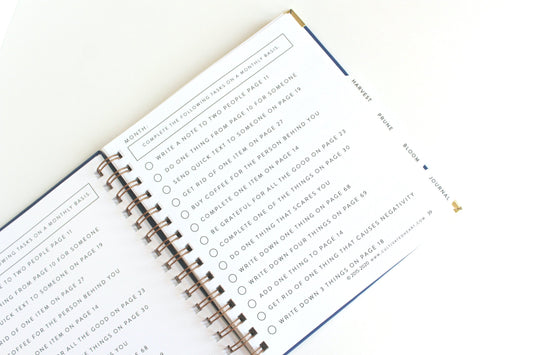 MONTH:
COMPLETE THE FOLLOWING TASKS ON A MONTHLY BASIS.
WRITE A NOTE TO TWO PEOPLE PAGE 11
DO ONE THING FROM PAGE 10 FOR SOMEONE
SEND QUICK TEXT TO SOMEONE ON PAGE 19
GET RID OF ONE ITEM ON PAGE 27
BUY COFFEE FOR THE PERSON BEHIND YOU
COMPLETE ONE ITEM ON PAGE 14
BE GRATEFUL FOR ALL THE GOOD ON PAGE 23
COMPLETE ONE OF THE THINGS ON PAGE 30
DO ONE THING THAT SCARES YOU
WRITE DOWN ONE THING ON PAGE 68
WRITE DOWN YOUR THINGS ON PAGE 69
ADD ONE THING TO PAGE 14
GET RID OF ONE THING THAT CAUSES NEGATIVITY
WRITE DOWN 3 THINGS ON PAGE 18
©2015-2020
HARVEST
PRUNE
BLOOM
JOURNAL
TASKS ON A MONTHLY BASIS.
TO TWO PEOPLE PAGE 11
THING FROM PAGE 10 FOR SOMEONE
TEXT TO SOMEONE ON PAGE 19
OF ONE ITEM ON PAGE 27
COFFEE FOR THE PERSON BEHIND YOU
ONE ITEM ON PAGE 14
FOR ALL THE GOOD ON PAGE 23
OF THE THINGS ON PAGE 30
THAT SCARES YOU
THING ON PAGE 68